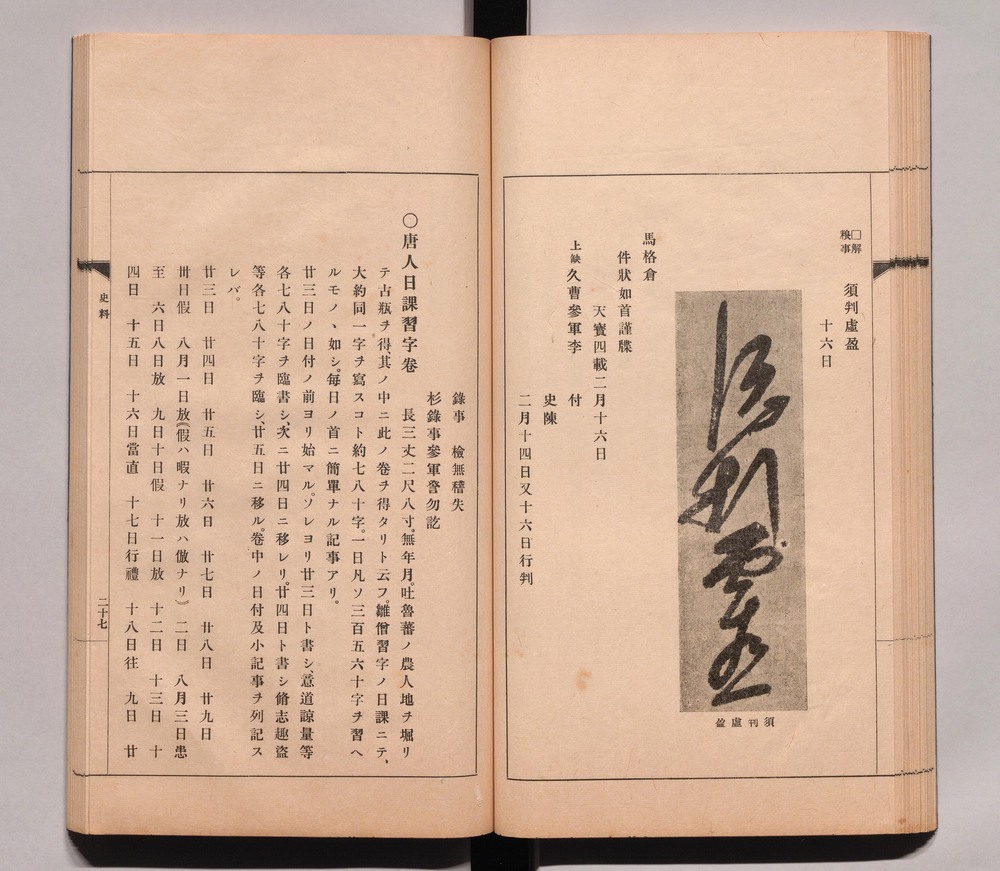 □解
糗事
須判虛盈
十六日
須判虛盈
馬格倉
件狀如首謹牒
天寶四載二月十六日
上缺久曹參軍李　付
史陳
二月十四日又十六日行判
錄事　檢無稽失
杉錄事參軍訔勿訖
〇唐人日課習字卷　長三丈二尺八寸。無年月。吐魯蕃ノ農人地ヲ堀リ
テ古瓶ヲ得其ノ中ニ此ノ卷ヲ得タリト云フ。雛僧習字ノ日課ニテ、
大約同一字ヲ寫スコト約七八十字。一日凡ソ三百五六十字ヲ習ヘ
ルモノヽ如シ。每日ノ首ニ簡單ナル記事アリ。
廿三日ノ日付ノ前ヨリ始マル。ソレヨリ廿三日ト書シ、意道諒量等
各七八十字ヲ臨書シ、次ニ廿四日ニ移レリ。廿四日ト書シ脩志趣盜
等各七八十字ヲ臨シ、廿五日ニ移ル。卷中ノ日付及小記事ヲ列記ス
レバ。
廿三日　廿四日　廿五日　廿六日　廿七日　廿八日　廿九日
卅日假　八月一日放(假ハ暇ナリ放ハ倣ナリ)　二日　八月三日患
至　六日八日放　九日十日假　十一日放　十二日　十三日　十
四日　十五日　十六日當直　十七日行禮　十八日往　九日　廿
史料
二十七